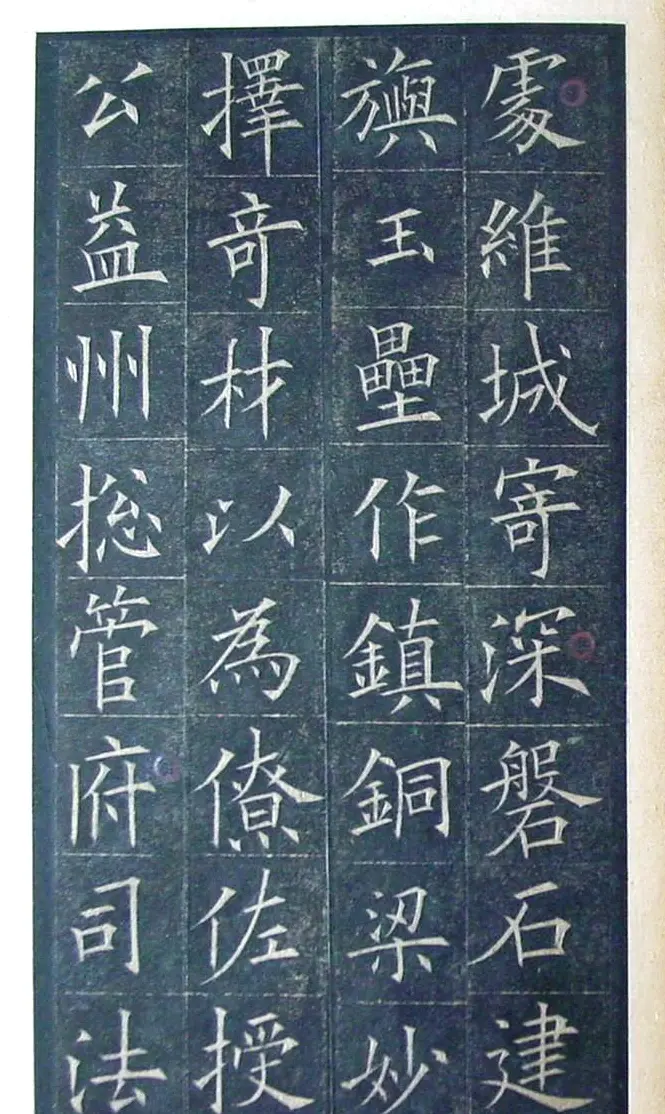 處維城寄深磐石建
旟玉壘作鎮銅梁妙
擇竒材以為僚佐授
公益州捴管府司法